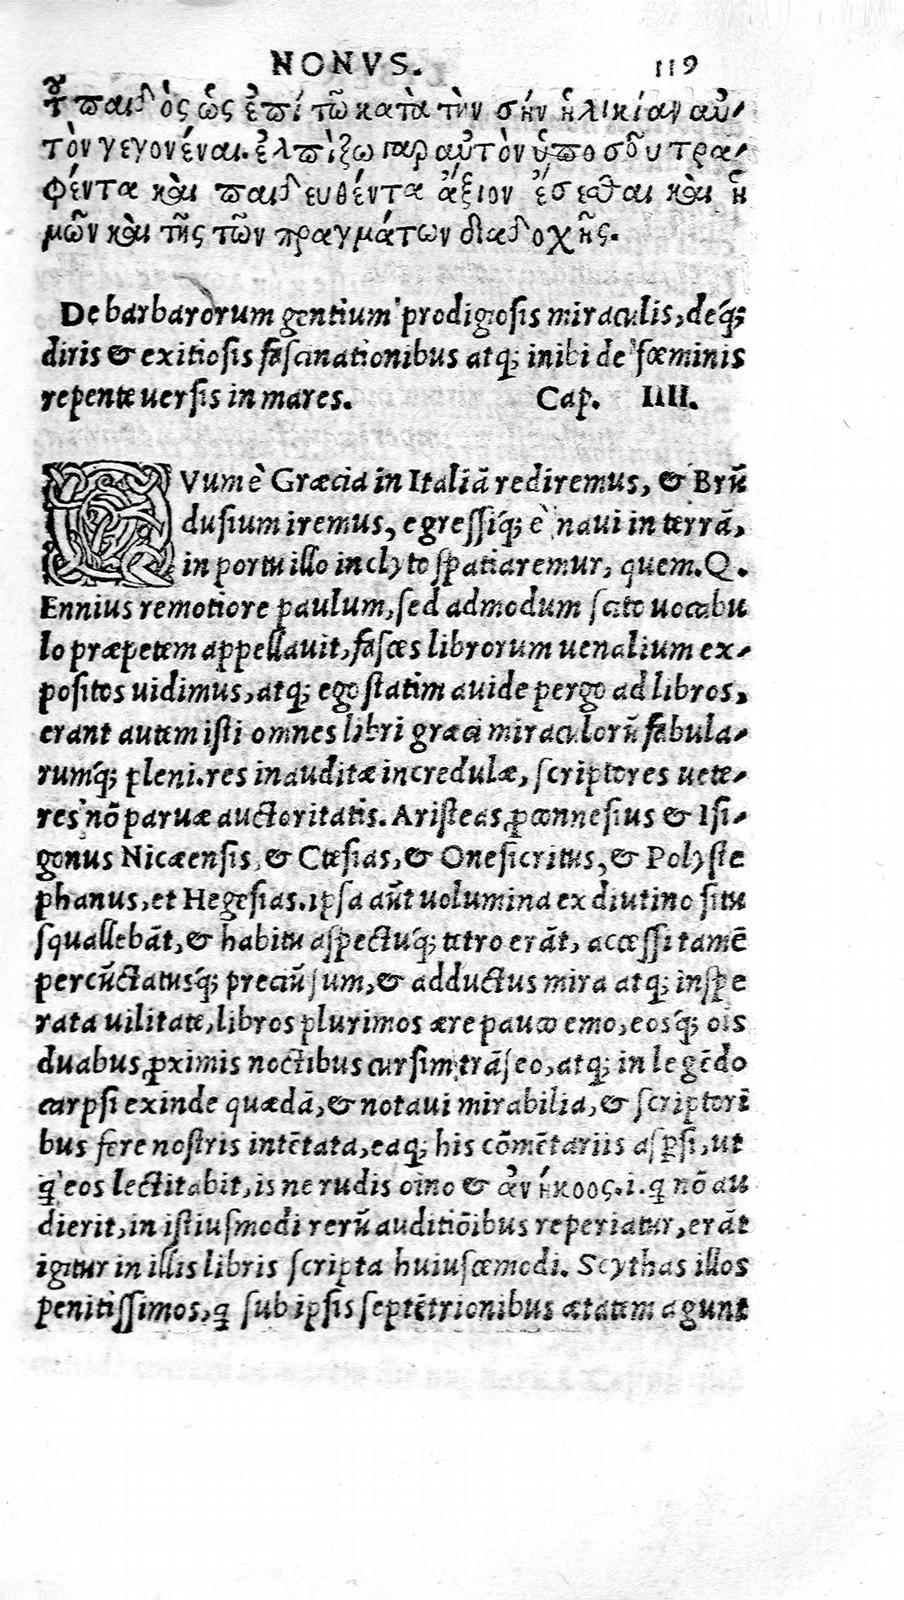 NONVS. 119
τȣ͂ παιδὸς ὡς ἐπί τῶ κατὰ τὴν σήν ἡλικίαν αὐ-
τὸν γεγονέναι. ἐλπίζω γαρ αὐτὸν ὑπο σοῦ τρα-
φέντα καὶ παιδευθέντα ἄξιον ἔσεσθαι καὶ ἡ
μῶν καὶ τῆς τῶν πραγμάτων διαδοχῆς.
De barbarorum gentium prodigiosis miraculis, deq́;
diris & exitiosis fascinationibus atq; inibi de fœminis
repente uersis in mares. Cap. IIII.
QVum è Græcia in Italiā rediremus, & Brū
dusium iremus, egressiq́; è naui in terrā,
in portu illo inclyto spatiaremur, quem. Q.
Ennius remotiore paulum, sed admodum scito uocabu
lo præpetem appellauit, fasces librorum uenalium ex-
positos uidimus, atq; ego statim auide pergo ad libros,
erant autem isti omnes libri græci miraculorū fabula-
rumq́; pleni. res inauditæ incredulæ, scriptores uete-
res nō paruæ auctoritatis. Aristeas ꝓconnesius & Isi-
gonus Nicæensis, & Ctesias, & Onesicritus, & Polyste
phanus, et Hegesias. ipsa aūt uolumina ex diutino situ
squallebāt, & habitu aspectuq́; tetro erāt, accessi tamē
percūctatusq́; preciū sum, & adductus mira atq; inspe
rata uilitate, libros plurimos ære pauco emo, eosq́; oīs
duabus ꝓximis noctibus cursim trāseo, atq; in legēdo
carpsi exinde quædā, & notaui mirabilia, & scriptorī
bus fere nostris intētata, eaq; his cōmētariis asꝑsi, ut
q̇ eos lectitabit, is ne rudis oīno & ἀνήκοος. i. q nō au
dierit, in istiusmodi rerū auditiōibus reperiatur, erāt
igitur in illis libris scripta huiuscemodi. Scythas illos
penitissimos, q sub ipsis septētrionibus ætatem agunt